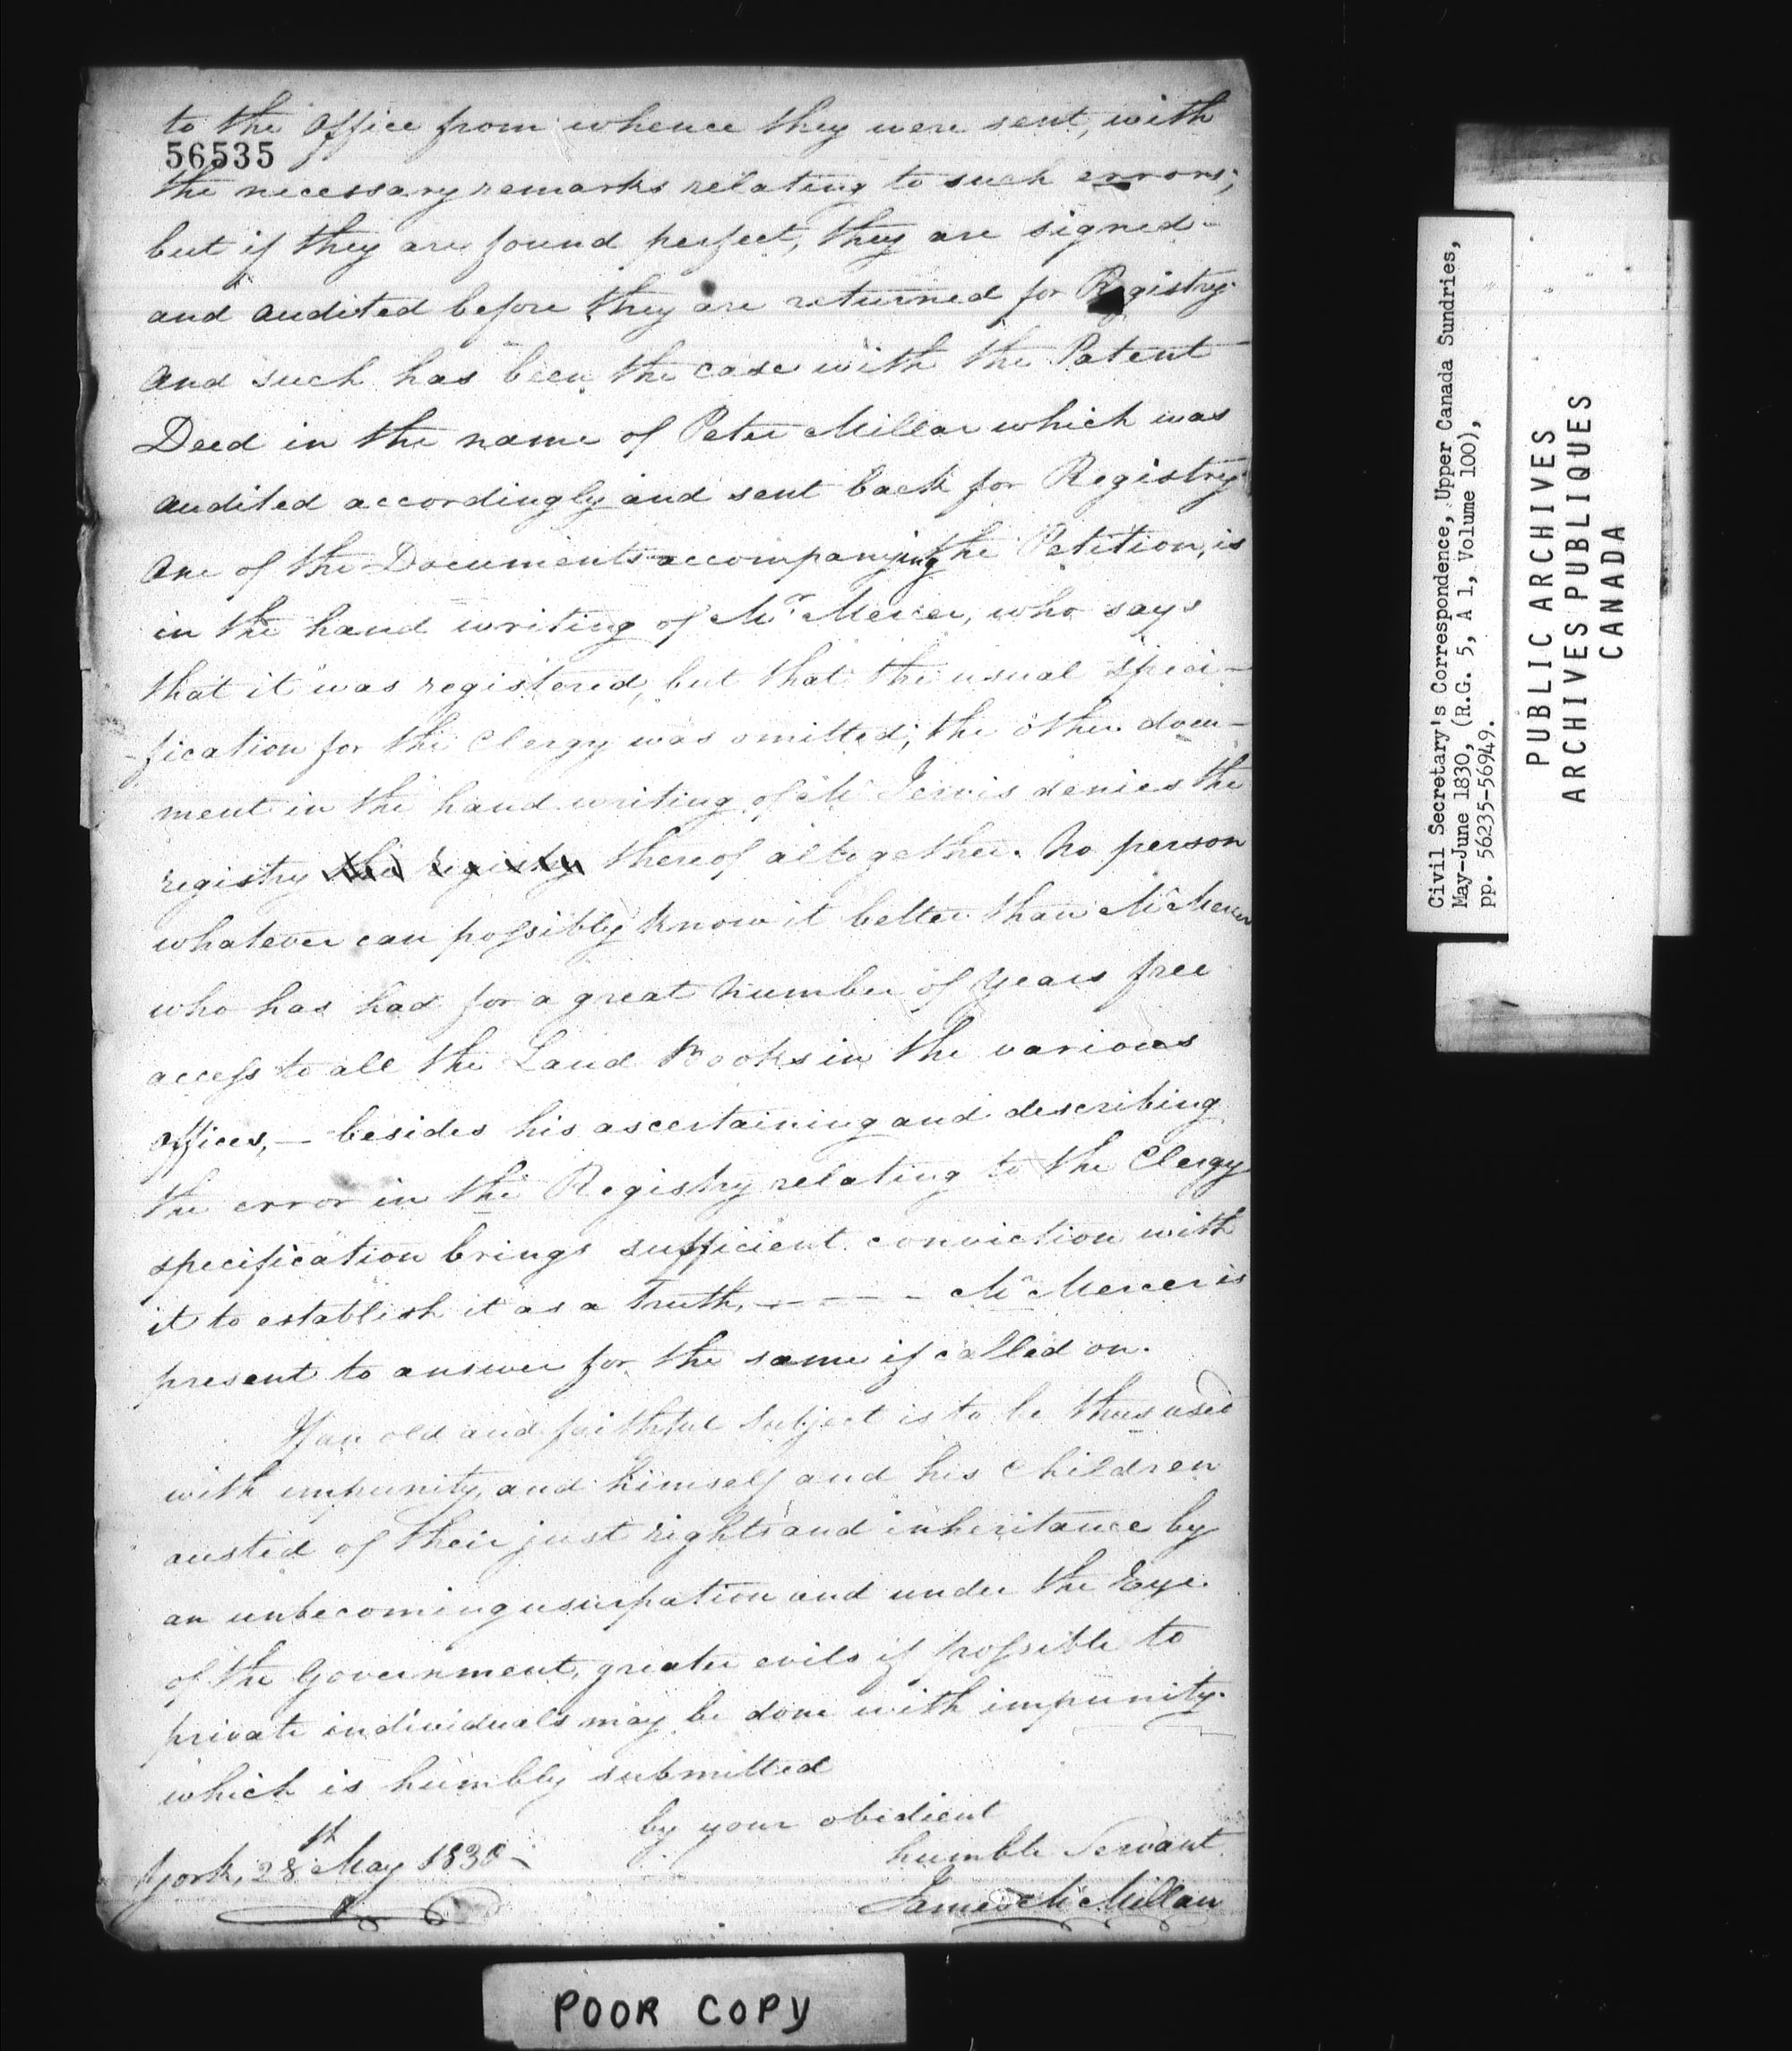 to the Office from whence they were sent, with
56535
the necessary remarks relating to such errors;
but if they are found perfect, they are signed
and audited before they are returned for Registry.
And such has been the case with the Patent
Deed in the name of Peter Millar which was
audited accordingly and sent back for Registry.
One of the Documents accompanying the Petition, is
in the hand writing of Mr Mercer, who says
that it was registered, but that the usual speci-
-fication for the Clergy was omitted; the other docu-
ment in the hand writing of Mr Jervis denies the
registry the registry thereof altogether. No person
whatever can possibly know it better than Mr Mercer
who has had for a great number of years free
access to all the Land Books in the various
Offices, — besides his ascertaining and describing
the error in the Registry relating to the Clergy
specification brings sufficient conviction with
it to establish it as a Truth. — — — — Mr Mercer is
present to answer for the same if called on.
If an old and faithful subject is to be thus used
with impunity, and himself and his Children
ousted of their just rights and inheritance by
an unbecoming usurpation and under the Eye
of the Government, greater evils if possible to
private individuals may be done with impunity.
which is humbly submitted
by your obidient
humble Servant
York, 28th May 1830 –
James McMillan
POOR COPY
Civil Secretary's Correspondence, Upper Canada Sundries,
May-June 1830, (R.G. 5, A 1, Volume 100),
pp. 56235-56949.
PUBLIC ARCHIVES
ARCHIVES PUBLIQUES
CANADA